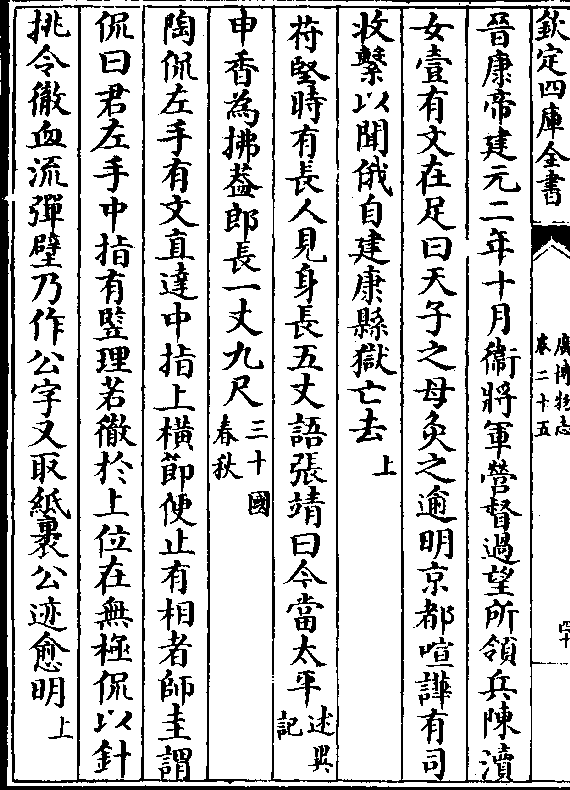 欽定四庫全書
廣博物志
卷二十五
晉康帝建元二年十月衞將軍營督過望所領兵陳瀆
女壹有文在足曰天子之母灸之逾明京都喧譁有司
收繫以聞俄自建康縣獄亡去上
苻堅時有長人見身長五丈語張靖曰今當太平述異記
申香為拂葢郎長一丈九尺三十國春秋
陶侃左手有文直達中指上橫節便止有相者師圭謂
侃曰君左手中指有豎理若徹於上位在無極侃以針
挑令徹血流彈壁乃作公字又取紙裹公迹愈明上